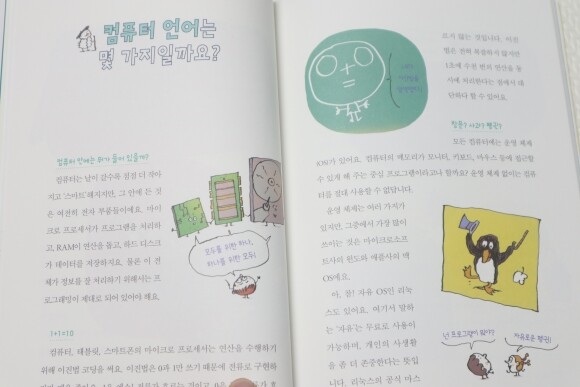 컴퓨터 언어는
몇 가지일까요?
컴퓨터 언어에는 뭐가 들어 있을까?
컴퓨터는 날이 갈수록 점점 더 작아
지고 '스마트'해지지만, 그 안에 든 것
은 여전히 전자 부품들이에요. 마이
크로 프로세서가 프로그램을 처리하
고, RAM이 연산을 돕고, 하드 디스크
가 데이터를 저장하지요. 물론 이 전
체가 정보를 잘 처리하기 위해서는 프
로그래밍이 제대로 되어 있어야 해요.
모두를 위한 하나,
하나를 위한 모두!
1+1=10
컴퓨터, 태블릿, 스마트폰의 마이크로 프로세서는 연산을 수행하기
위해 이진법 코딩을 써요. 이진법은 0과 1만 쓰기 때문에 전류로 구현하
뜨지 않는 것입니다. 이진
법은 전혀 복잡하지 않지만
1초에 수천 번의 연산을 동
시에 처리한다는 점에서 대
단하다 할 수 있어요.
창문? 사과? 펭귄?
모든 컴퓨터에는 운영 체제
(OS)가 있어요. 컴퓨터의 메모리가 모니터, 키보드, 마우스 등에 접근할
수 있게 해 주는 중심 프로그램이라고나 할까요? 운영 체제 없이는 컴퓨
터를 절대 사용할 수 없답니다.
운영 체제에는 여러 가지가
있지만, 그중에서 가장 많이
쓰이는 것은 마이크로소프
트사의 윈도와 애플사의 맥
OS예요.
아, 참! 자유 OS인 리눅
스도 있어요. 여기서 말하
는 '자유'는 무료로 사용이
가능하며, 개인의 사생활
을 좀 더 존중한다는 뜻입
니다. 리눅스의 공식 마스
넌 프로그램이 뭐야?
자유로운 펭귄!